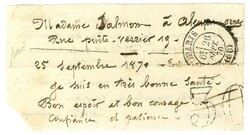 Madame Salmon à Alençon Orne
Rue puits-verrier 19
25 septembre 1870
je suis en très bonne santé
Bon espoir et bon courage
Confiance et patience